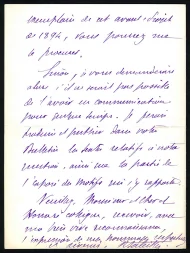 exemplaire de cet avant-projet
de 1894, vous pourrez me
le procurer.
Sinon, je vous demanderai
alors s'il ne serait pas possible
de l'avoir en communication
pour quelque temps. Je pense
traduire et publier dans votre
Bulletin le texte relatif à notre
question, ainsi que la partie de
l'exposé des motifs qui s'y rapporte.
Veuillez, Monsieur et cher et
Honoré collègue, recevoir, avec
ma très vive reconnaissance,
l'expression de mes hommages